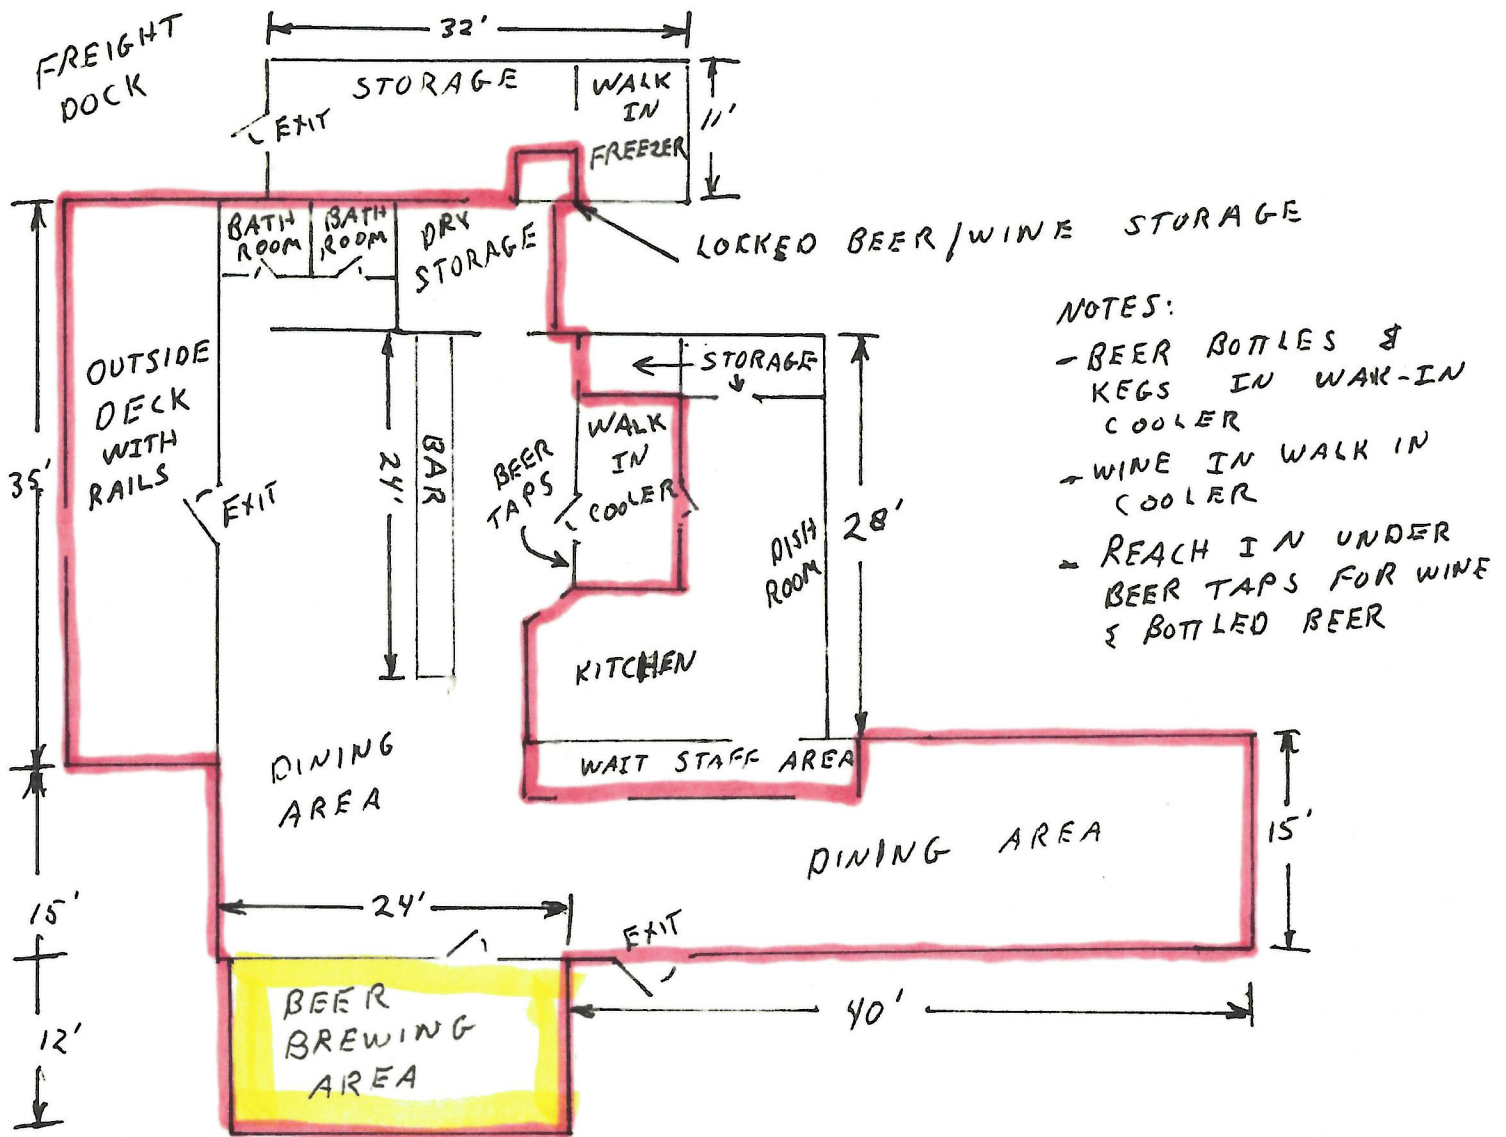 32'
FREIGHT
DOCK
STORAGE
WALK
IN
FREEZER
11'
EXIT
BATH
ROOM
BATH
ROOM
DRY
STORAGE
LOCKED BEER/WINE STORAGE
NOTES:
- BEER BOTTLES &
KEGS IN WAK-IN
COOLER
- WINE IN WALK IN
COOLER
- REACH IN UNDER
BEER TAPS FOR WINE
& BOTTLED BEER
OUTSIDE
DECK
WITH
RAILS
35'
EXIT
24'
BAR
BEER
TAPS
STORAGE
WALK
IN
COOLER
DISH
ROOM
28'
KITCHEN
WAIT STAFF AREA
DINING
AREA
DINING AREA
15'
15'
24'
EXIT
40'
BEER
BREWING
AREA
12'